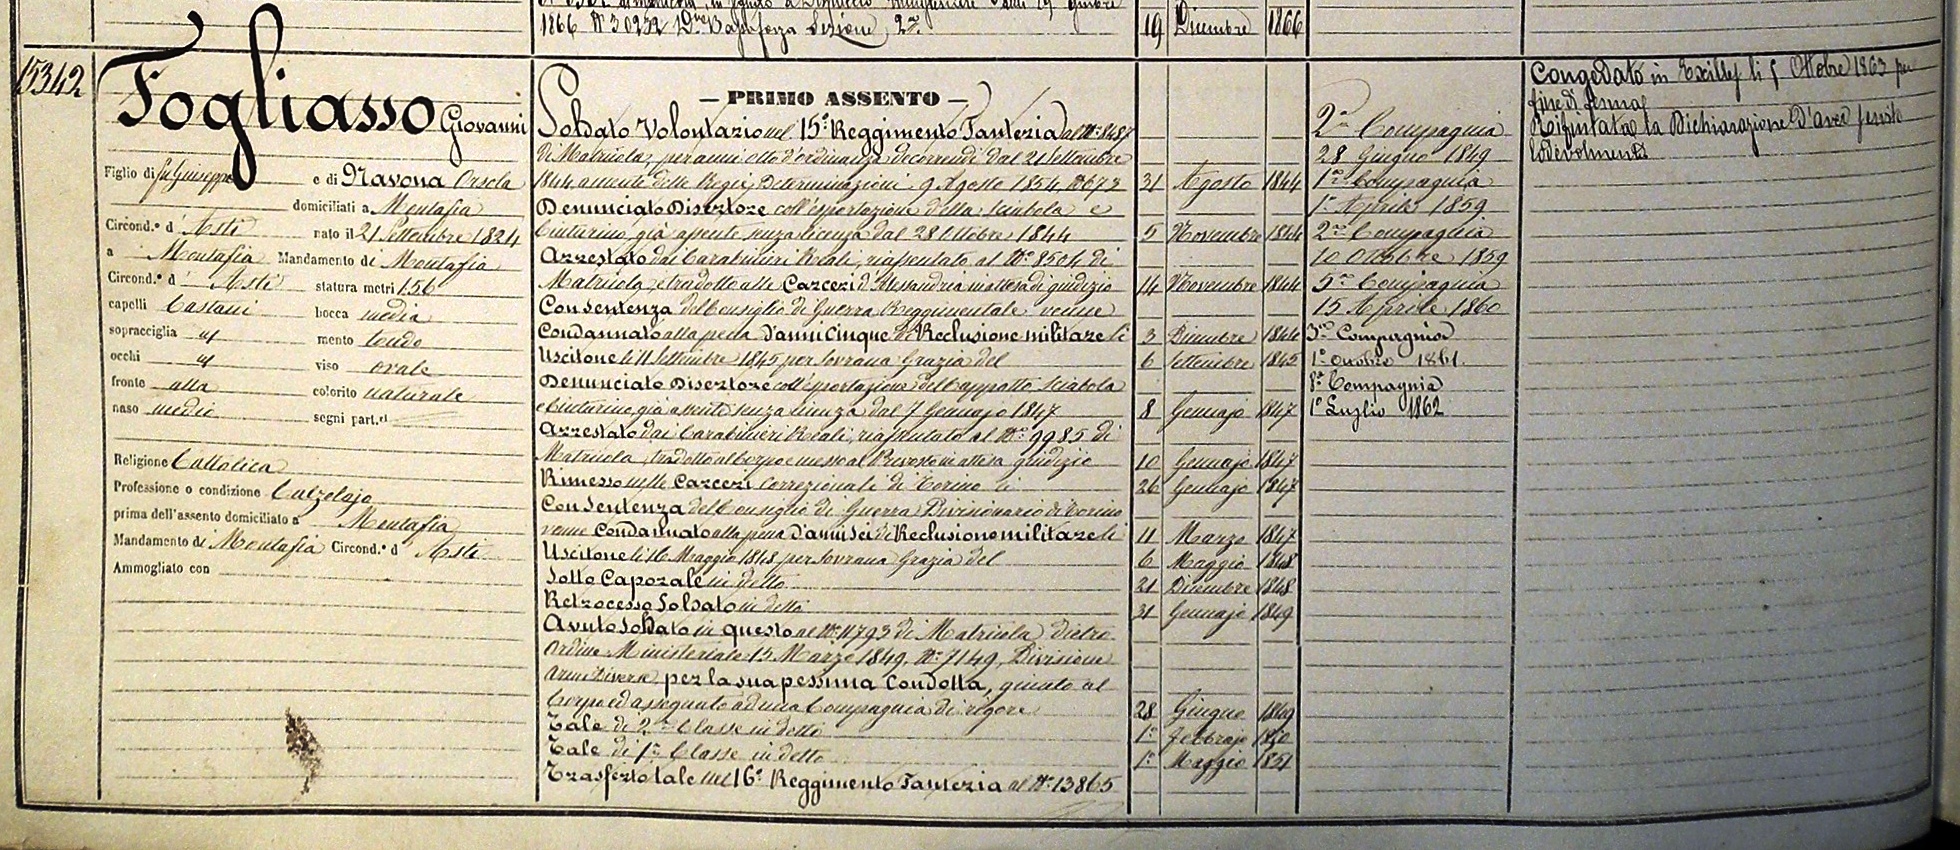 1866 Nº 30232 Sezione 2ª
19 Dicembre 1866
15342
Fogliasso Giovanni
Figlio di fu Giuseppe e di Navona Orsola
domiciliati a Montafia
Circond.º d' Asti nato il 21 Settembre 1824
a Montafia Mandamento di Montafia
Circond.º d' Asti statura metri 1.56
capelli Castani bocca media
sopracciglia id mento tondo
occhi id viso ovale
fronte alta colorito naturale
naso medio segni part.ri
Religione Cattolica
Professione o condizione Calzolajo
prima dell'assento domiciliato a Montafia
Mandamento di Montafia Circond.º d' Asti
Ammogliato con
— PRIMO ASSENTO —
Soldato Volontario nel 15º Reggimento Fanteria al Nº 8487
di Matricola, per anni otto d'ordinanza decorrendi dal 21 Settembre
1844 a mente delle Regie Determinazioni 9 Agosto 1854 Nº 673 31 Agosto 1844
Denunciato Disertore coll'esportazione della sciabola e
Cinturino, già assente senza licenza dal 28 Ottobre 1844 5 Novembre 1844
Arrestato dai Carabinieri Reali, riassentato al Nº 8504 di
Matricola e tradotto alle Carceri d'Alessandria in attesa di giudizio 14 Novembre 1844
Con sentenza del Consiglio di Guerra Reggimentale venne
Condannato alla pena d'anni cinque di Reclusione militare li 3 Dicembre 1844
Uscitone li 11 Settembre 1845 per Sovrana Grazia del 6 Settembre 1845
Denunciato Disertore coll'esportazione dell'appatto sciabola
e Cinturino, già assente senza licenza dal 7 Gennajo 1847 8 Gennajo 1847
Arrestato dai Carabinieri Reali, riassentato al Nº 9985 di
Matricola, tradotto al Corpo e messo al Prevosto in attesa giudizio 10 Gennajo 1847
Rimesso nelle Carceri Correzionali di Torino li 26 Gennajo 1847
Con Sentenza del Consiglio di Guerra Divisionario di Torino
venne Condannato alla pena d'anni sei di Reclusione militare li 11 Marzo 1847
Uscitone li 16 Maggio 1848 per Sovrana Grazia del 6 Maggio 1848
Sotto Caporale in detto 21 Dicembre 1848
Retrocesso Soldato in detto 31 Gennajo 1849
Avuto Soldato in questo al Nº 11793 di Matricola dietro
ordine Ministeriale 15 Marzo 1849, Nº 7149, Divisione
Armi Diverse per la sua pessima Condotta, giunto al
Corpo ed assegnato ad una Compagnia di rigore 28 Giugno 1849
Tale di 2ª Classe in detto 1º Febbrajo 1850
Tale di 1ª Classe in detto 1º Maggio 1851
Trasferto tale nel 16º Reggimento Fanteria al Nº 13865
2ª Compagnia
28 Giugno 1849
1ª Compagnia
1º Aprile 1859
2ª Compagnia
10 Ottobre 1859
5ª Compagnia
15 Aprile 1860
3ª Compagnia
1º Ottobre 1861.
8ª Compagnia
1º Luglio 1862
Congedato in Exilles li 5 Ottobre 1863 per
fine di ferma
Rifiutata la Dichiarazione d'aver servito
lodevolmente